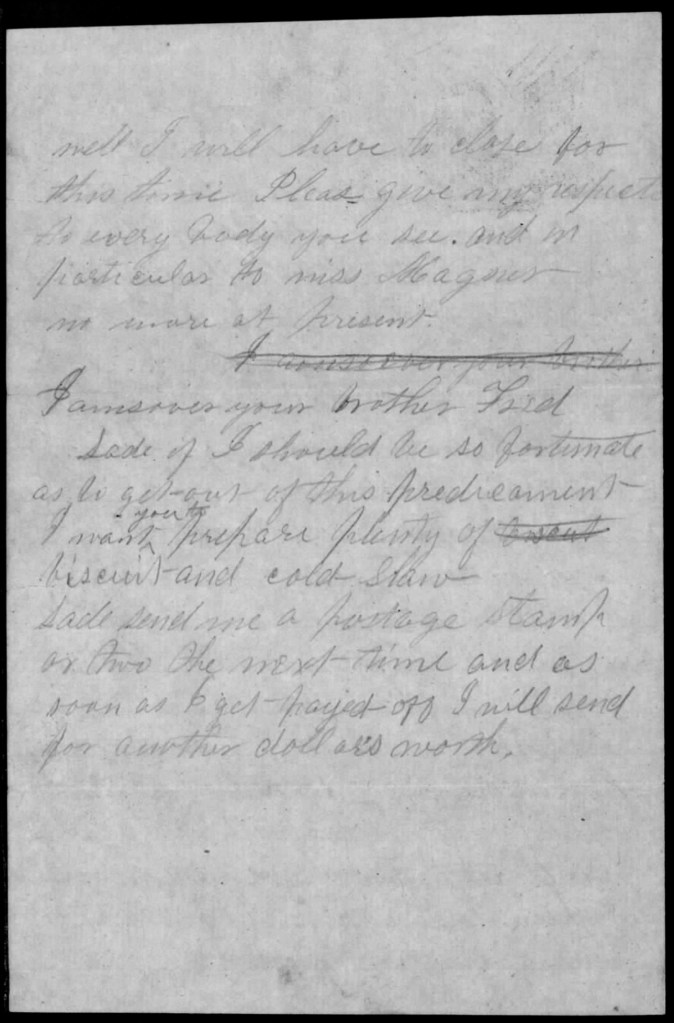 well I will have to close for
this time Pleas give my respects
to every body you see. and in
particular to miss Magner
no more at present.
I your brother
I am ever your brother Fred
Sade if I should be so fortunate
as to get out of this predicament
I want you to prepare plenty of
biscuit and cold slaw
Sade send me a postage stamp
or two the next time and as
soon as I get payed off I will send
for another dollars worth.